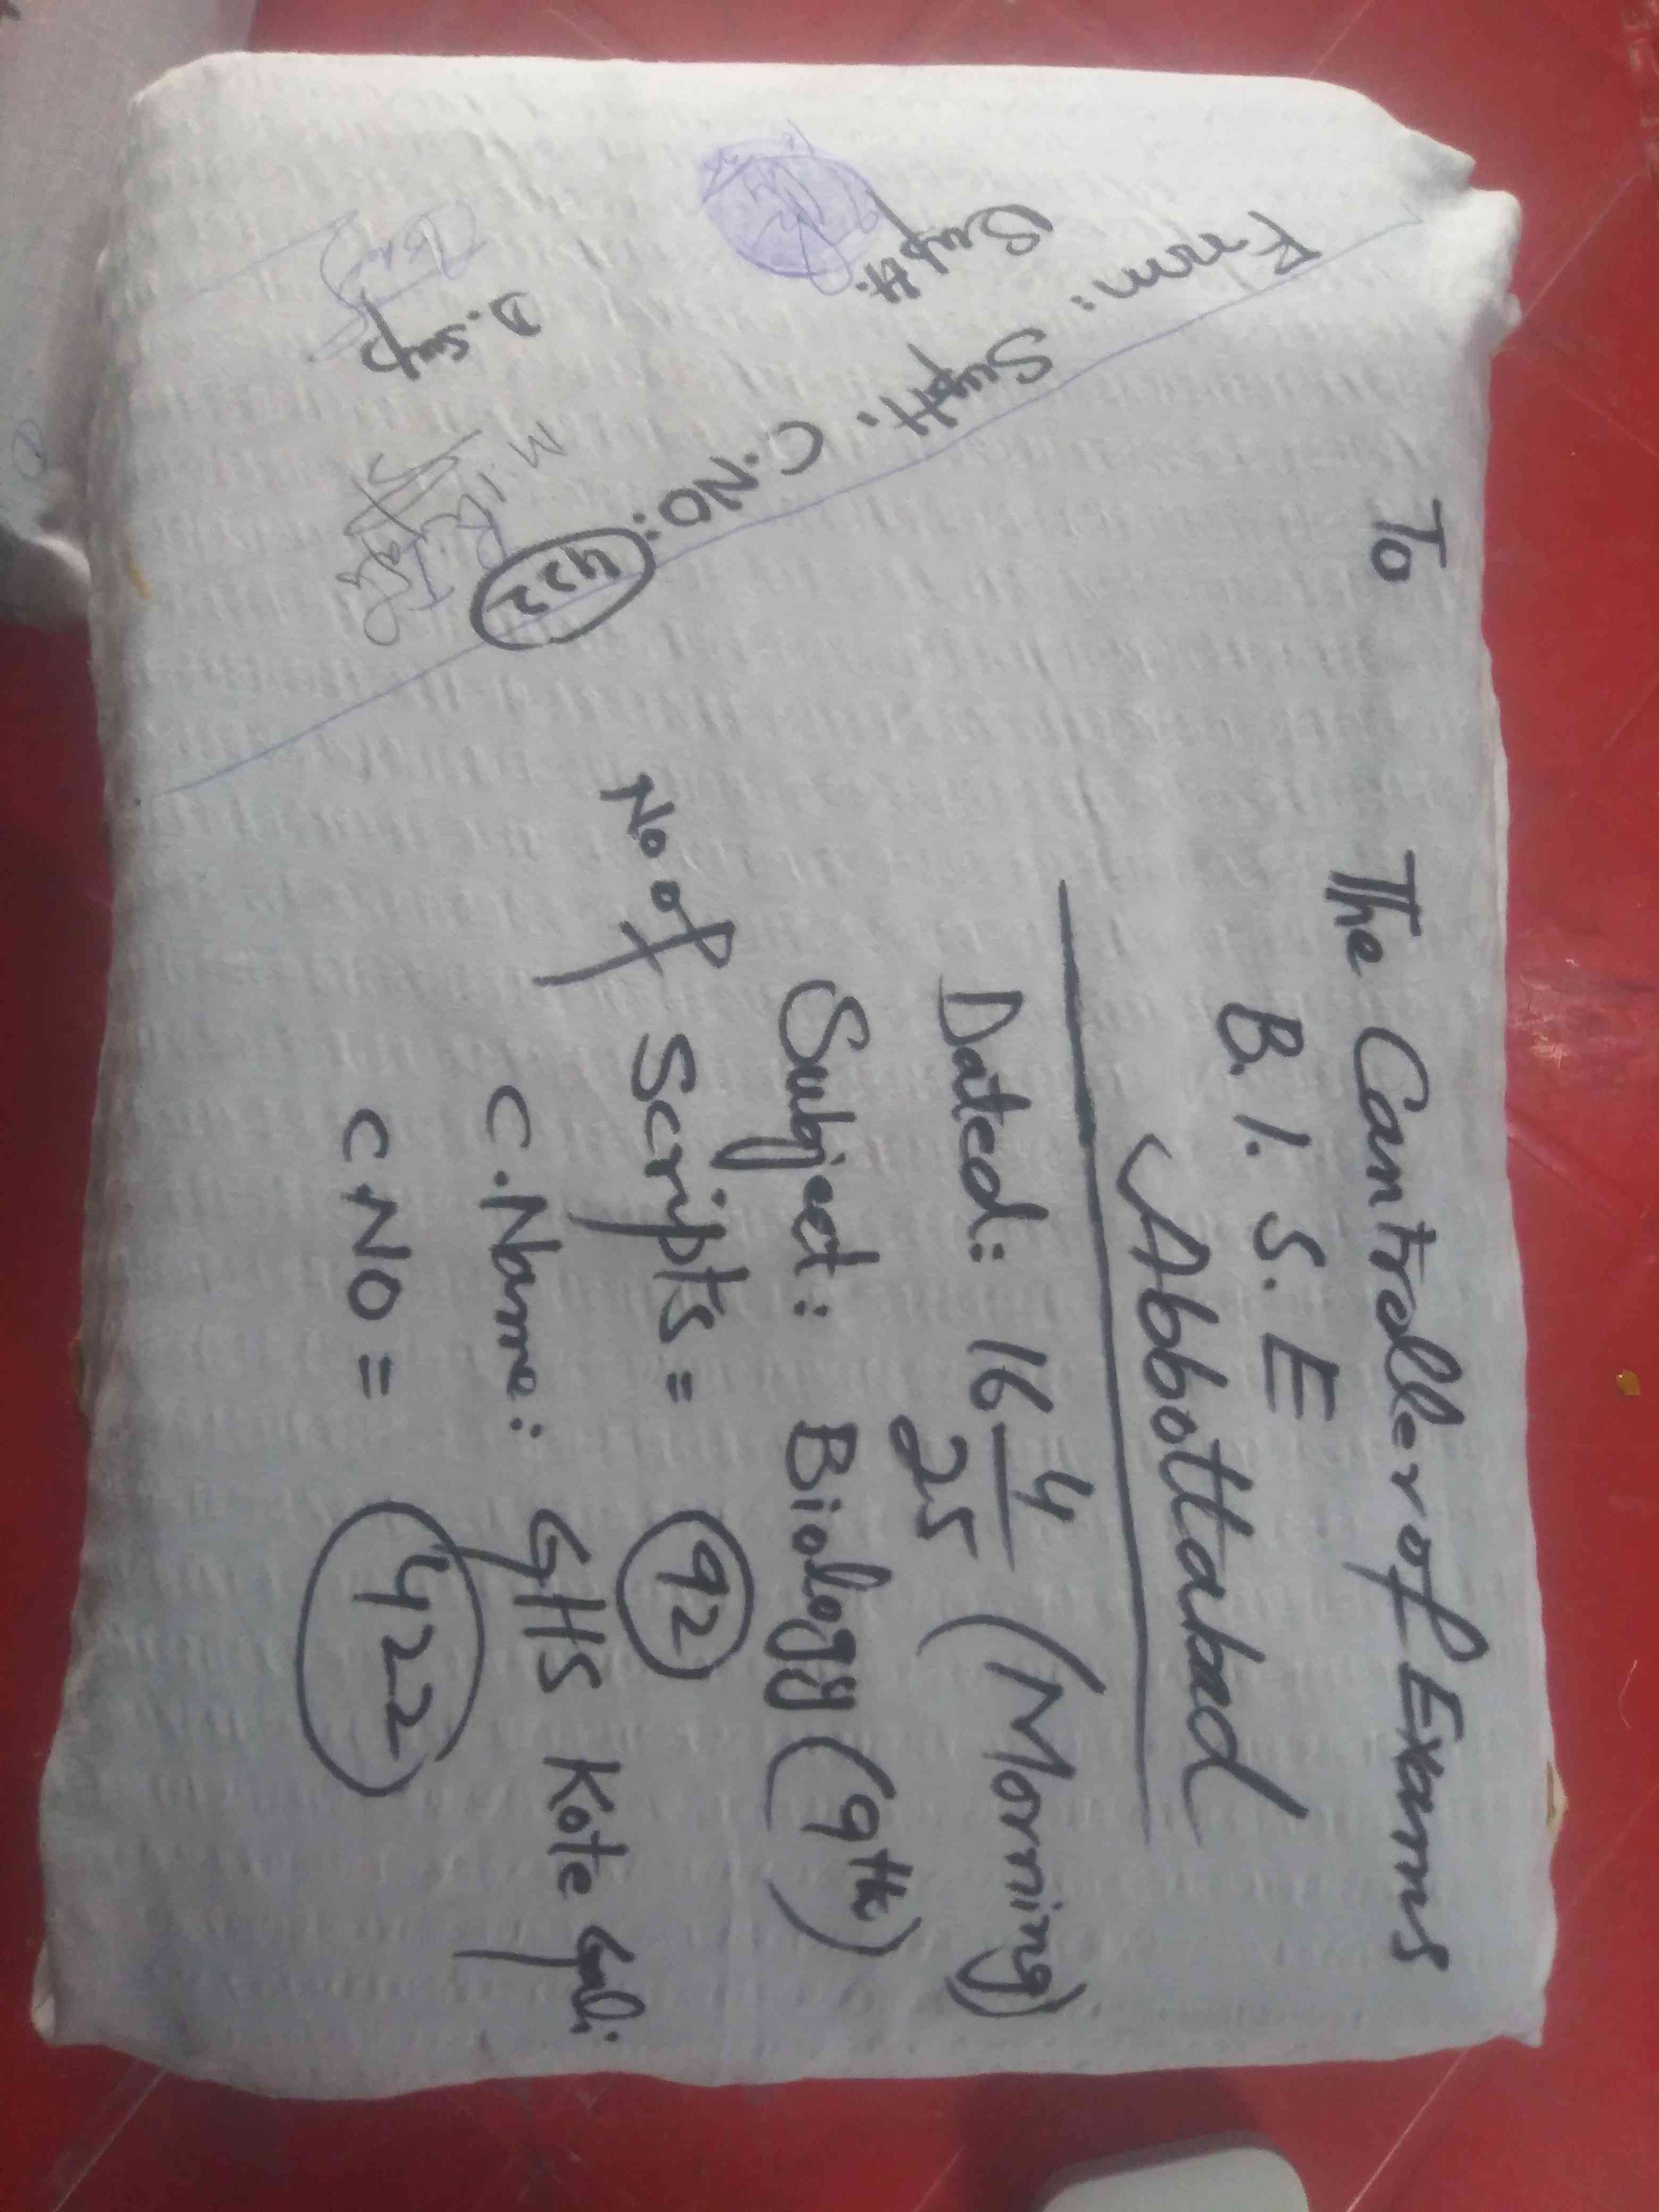 To
The Controller of Exams
B. I. S. E
Abbottabad
Dated: 16 4/25 (Morning)
Subject: Biology (9th)
No of Scripts = 92
C. Name: GHS Kote Gali
C. NO = 422
From: Supdt. C.NO: 422
Supdt.
D. Sup